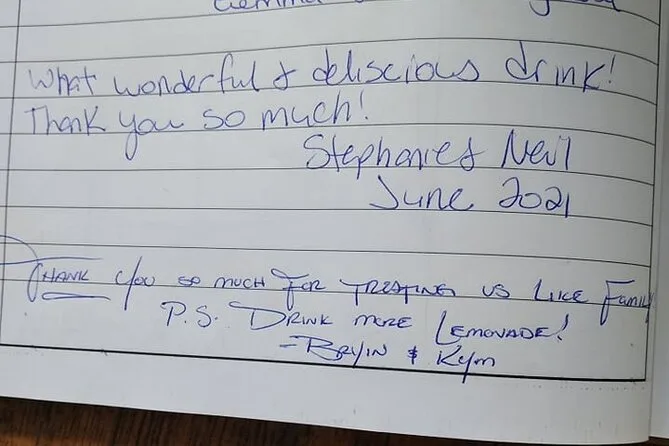 What wonderful & deliscious drink!
Thank you so much!
Stephanie & Neil
June 2021
THANK YOU SO MUCH FOR TREATING US LIKE FAMILY
P.S. DRINK MORE LEMONADE!
- BRYIN & KYM